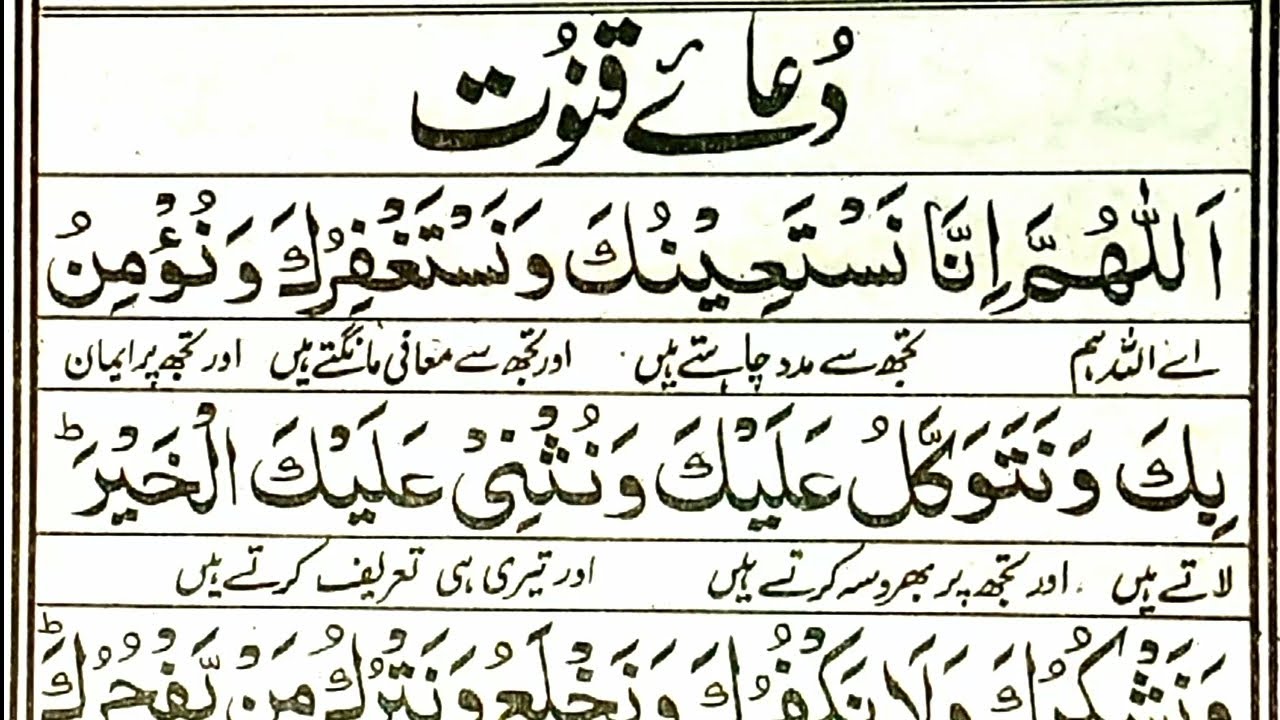 دُعائے قنوُت
اَللّٰهُمَّ اِنَّا نَسْتَعِيْنُكَ وَنَسْتَغْفِرُكَ وَنُؤْمِنُ
اے اللہ ہم تجھ سے مدد چاہتے ہیں اور تجھ سے معافی مانگتے ہیں اور تجھ پر ایمان
بِكَ وَنَتَوَكَّلُ عَلَيْكَ وَنُثْنِىْ عَلَيْكَ الْخَيْرَ ؕ
لاتے ہیں۔ اور تجھ پر بھروسہ کرتے ہیں اور تیری ہی تعریف کرتے ہیں
وَنَشْكُرُكَ وَلَا نَكْفُرُكَ وَنَخْلَعُ وَنَتْرُكُ مَنْ يَّفْجُرُكَ ؕ